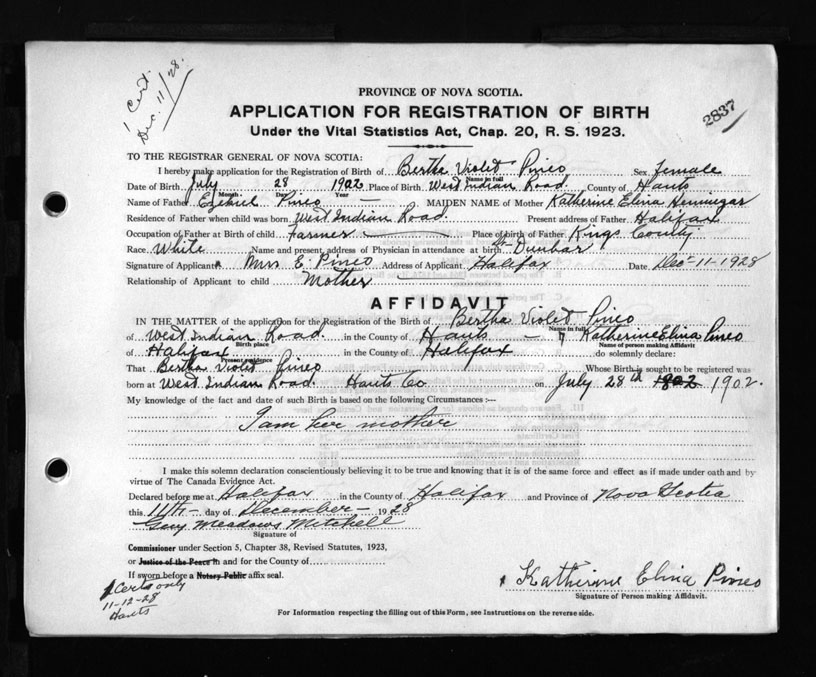 1 Cert.
Dec. 11/28.
2837
PROVINCE OF NOVA SCOTIA.
APPLICATION FOR REGISTRATION OF BIRTH
Under the Vital Statistics Act, Chap. 20, R. S. 1923.
TO THE REGISTRAR GENERAL OF NOVA SCOTIA:
I hereby make application for the Registration of Birth of Bertha Violet Pineo Sex Female
Name in full
Date of Birth July 28 1902 Place of Birth West Indian Road County of Hants
Month Day Year
Name of Father Ezekiel Pineo — MAIDEN NAME of Mother Katherine Elina Hennigar
Residence of Father when child was born West Indian Road. Present address of Father Halifax
Occupation of Father at Birth of child Farmer Place of birth of Father Kings County
Race White Name and present address of Physician in attendance at birth Dr Dunbar
Signature of Applicant Mrs E. Pineo Address of Applicant Halifax Date Dec-11-1928
Relationship of Applicant to child Mother
AFFIDAVIT
IN THE MATTER of the application for the Registration of the Birth of Bertha Violet Pineo
Name in full
of West Indian Road. in the County of Hants — I Katherine Elina Pineo
Birth place Name of person making Affidavit
of Halifax in the County of Halifax do solemnly declare:
Present residence
That Bertha Violet Pineo Whose Birth is sought to be registered was
born at West Indian Road. Hants Co on July 28th 1802 1902.
My knowledge of the fact and date of such Birth is based on the following Circumstances :—
I am her mother
I make this solemn declaration conscientiously believing it to be true and knowing that it is of the same force and effect as if made under oath and by
virtue of The Canada Evidence Act.
Declared before me at Halifax in the County of Halifax and Province of Nova Scotia
this 11th — day of December — 1928
Guy Meadows Mitchell
Signature of
Commissioner under Section 5, Chapter 38, Revised Statutes, 1923,
or Justice of the Peace in and for the County of
If sworn before a Notary Public affix seal.
1 Certs only
11-12-28
Hants
Katherine Elina Pineo
Signature of Person making Affidavit.
For Information respecting the filling out of this Form, see Instructions on the reverse side.